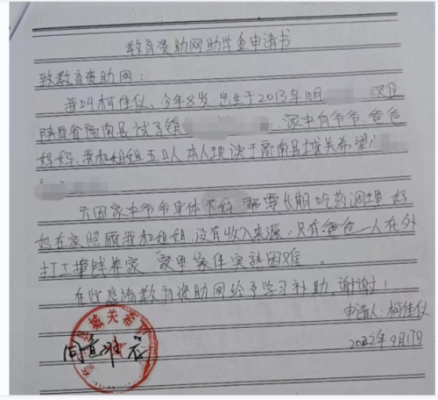 教育资助网助学金申请书
致教育资助网:
我叫柯佳仪、今年8岁 出生于2013年10月
陕西省商南县试马镇 家中有爷爷、爸爸
妈妈、我和姐姐五口人 本人现读于商南县城关希望
因家中爷爷身体不好 需要长期吃药调理 妈
妈在家照顾我和姐姐、没有收入来源、只有爸爸一人在外
打工挣钱养家、家里条件实在困难、
在此恳请教育资助网给予学习补助,谢谢!
申请人:柯佳仪
2022年9月17日
城关希
同意